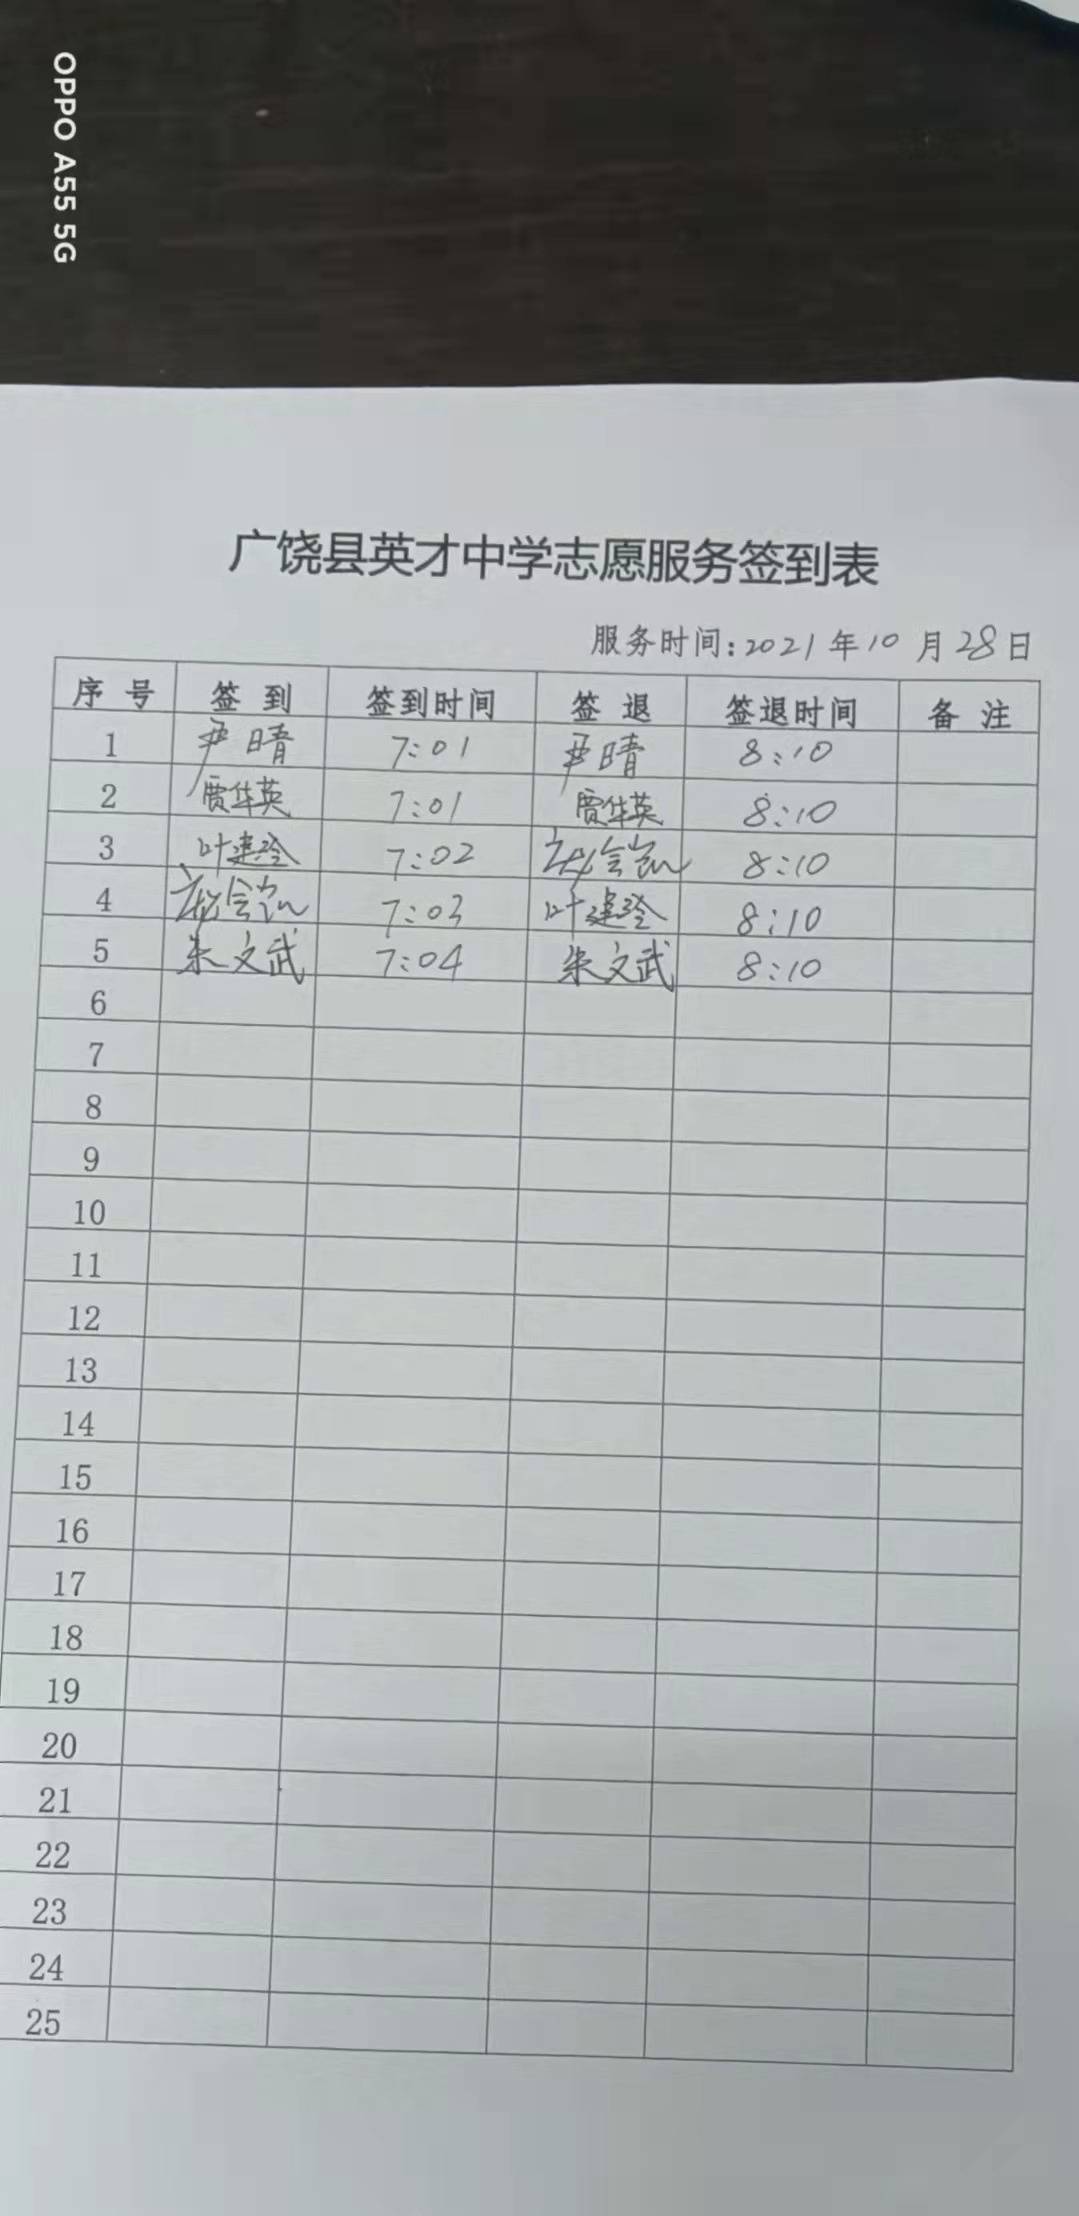 OPPO A55 5G
广饶县英才中学志愿服务签到表
服务时间:2021年10月28日
序号 签到 签到时间 签退 签退时间 备注
1 尹晴 7:01 尹晴 8:10
2 贾华英 7:01 贾华英 8:10
3 叶建玲 7:02 8:10
4 7:03 叶建玲 8:10
5 朱文武 7:04 朱文武 8:10
6
7
8
9
10
11
12
13
14
15
16
17
18
19
20
21
22
23
24
25